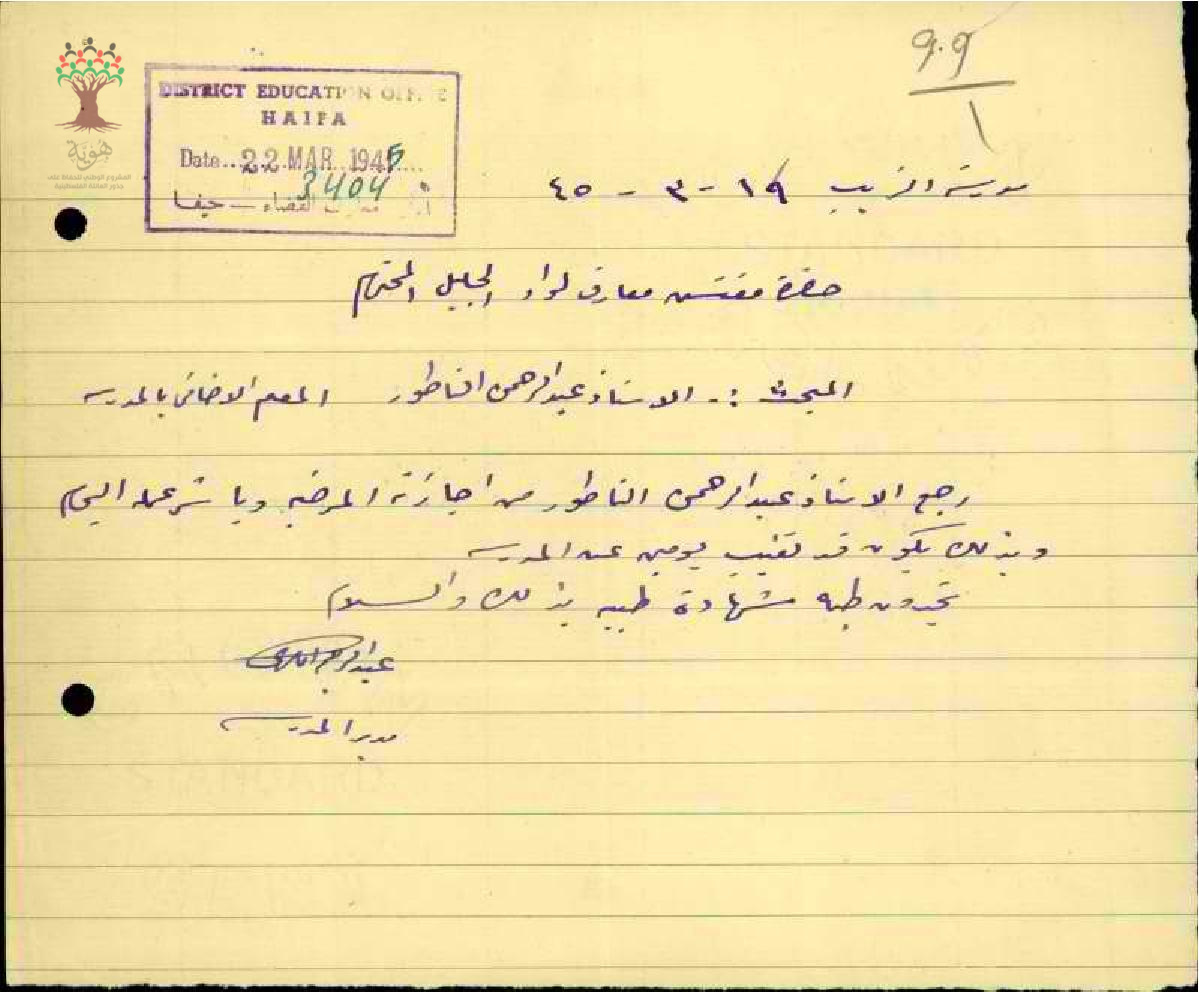 9.9
1
DISTRICT EDUCATION OFFICE
HAIFA
Date..22 MAR 1945
3404
معارف القضاء — حيفا
هوية
المشروع الوطني للحفاظ على
جذور العائلة الفلسطينية
مدرسة الزيب ١٩ - ٣ - ٤٥
حضرة مفتش معارف لواء الجليل المحترم
المبحث :- الاستاذ عبدالرحمن الناطور المعلم الاضافي بالمدرسه
رجع الاستاذ عبدالرحمن الناطور من اجازته المرضيه وباشر عمله اليوم
وبذلك يكون قد تغيب يومين عن المدرسه
تجدون طيه شهادة طبيه بذلك والسلام
مدير المدرسه